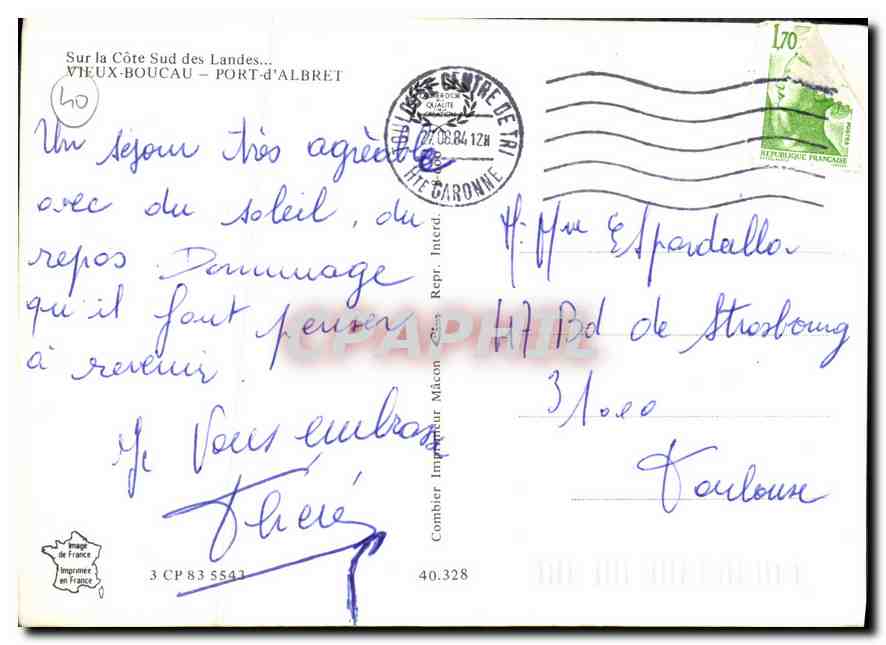 Sur la Côte Sud des Landes...
VIEUX-BOUCAU – PORT-d'ALBRET
40
Un séjour très agréable
avec du soleil, du
repos Dommage
qu'il faut penser
à revenir.
Je Vous embrasse
TOULOUSE CENTRE DE TRI
27.08.84 12H
HTE GARONNE
1,70
POSTES
REPUBLIQUE FRANÇAISE
M. Mme Espardella
47 Bd de Strasbourg
31000
Toulouse
Combier Imprimeur Mâcon Cim Repr. Interd.
CPAPHIL
Image
de France
Imprimée
en France
3 CP 83 5543
40.328